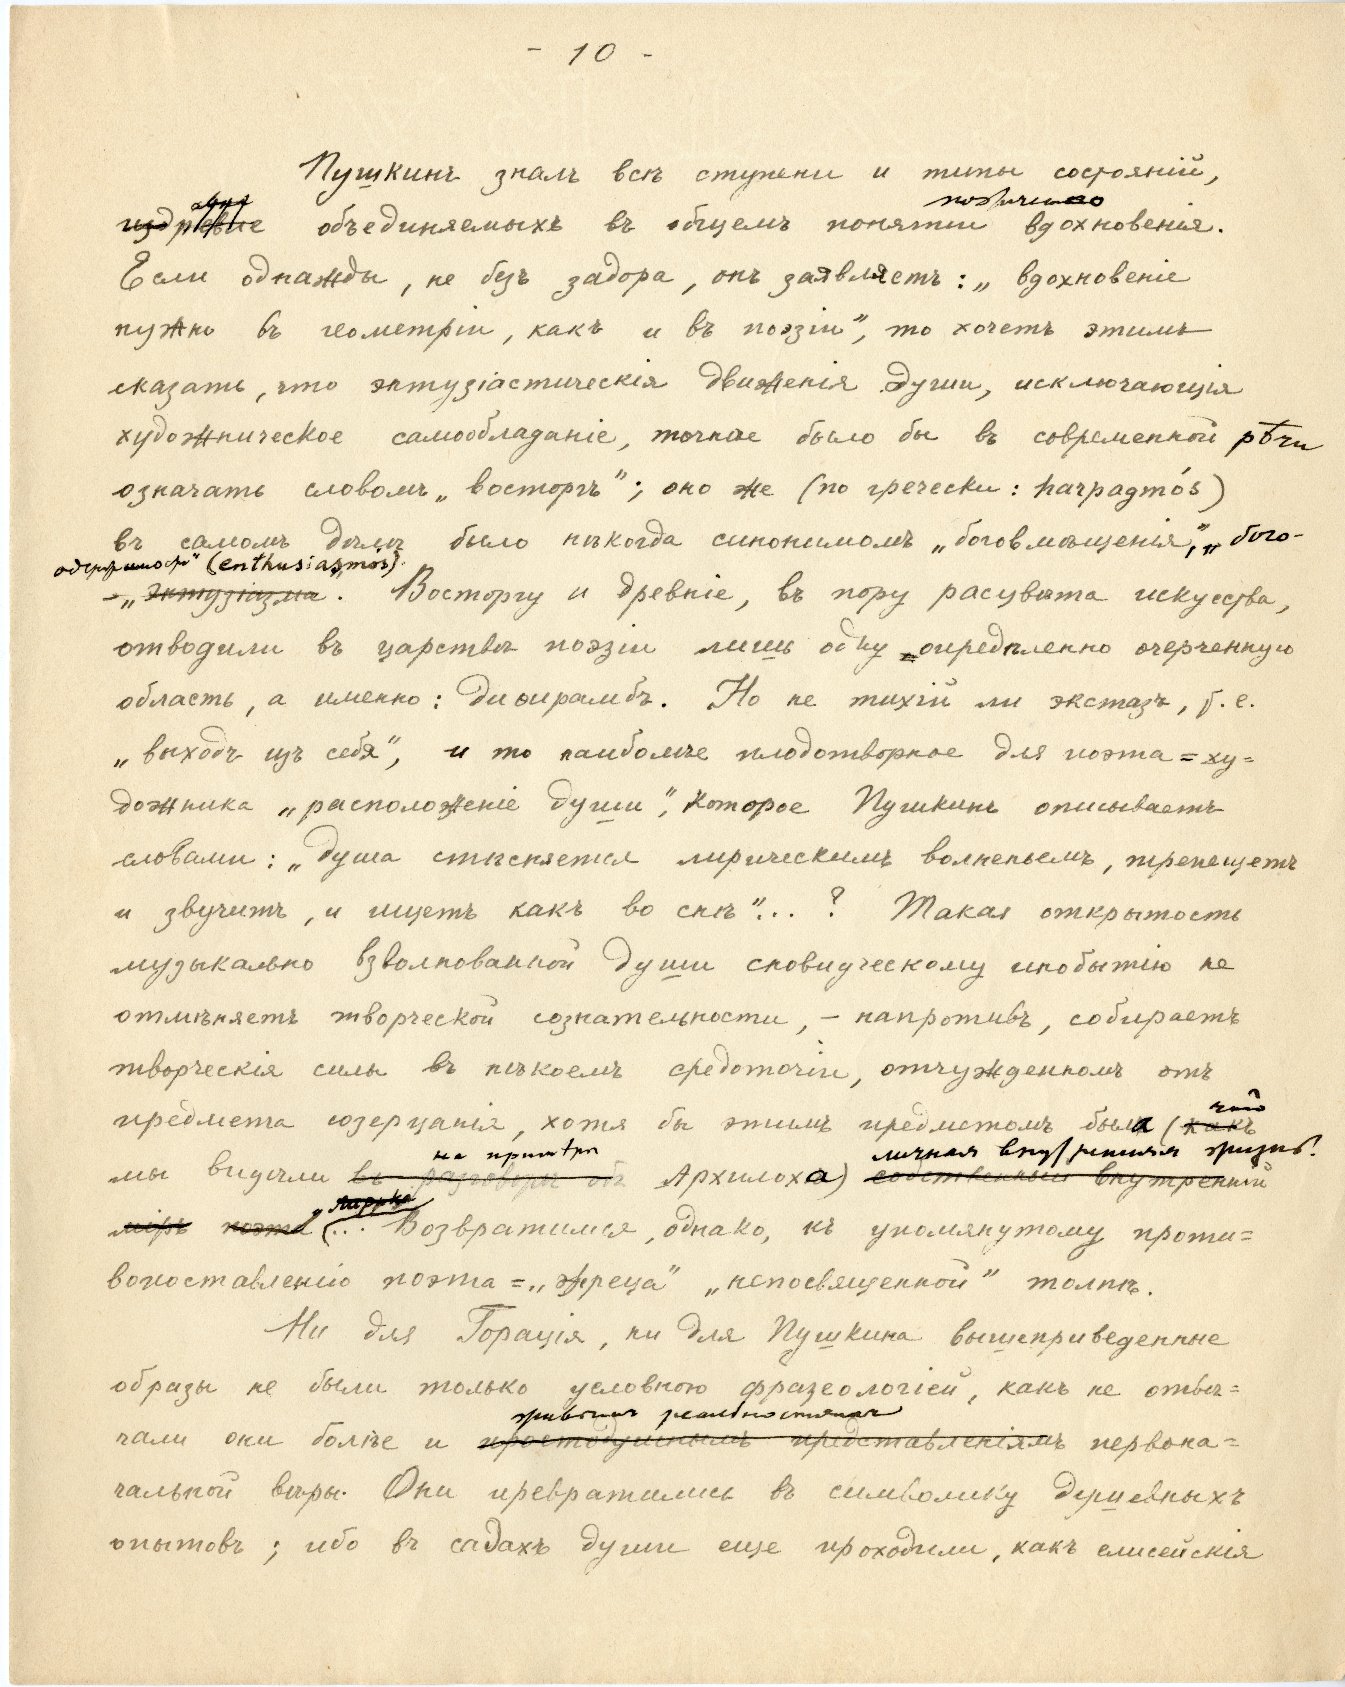 - 10 -
Пушкинъ зналъ всѣ ступени и типы состояній,
поэтическаго
издревле объединяемыхъ въ общемъ понятіи вдохновенія.
Если однажды, не безъ задора, онъ заявляетъ: „вдохновеніе
нужно въ геометріи, какъ и въ поэзіи", то хочетъ этимъ
сказать, что энтузіастическія движенія души, исключающія
художническое самообладаніе, точнѣе было бы въ современной рѣчи
означать словомъ „восторгъ"; оно же (по гречески: harpagmós)
въ самомъ дѣлѣ было нѣкогда синонимомъ „боговмѣщенія", „бого-
одержимости" (enthusiasmós).
– „энтузіазма. Восторгу и древніе, въ пору расцвѣта искусства,
отводили въ царствѣ поэзіи лишь одну опредѣленно очерченную
область, а именно: диѳирамбъ. Но не тихій ли экстазъ, т. е.
„выходъ изъ себя", и то наиболѣе плодотворное для поэта=ху=
дожника „расположеніе души", которое Пушкинъ описываетъ
словами: „душа стѣсняется лирическимъ волненьемъ, трепещетъ
и звучитъ, и ищетъ какъ во снѣ"... ? Такая открытость
музыкально взволнованной души сновидческому инобытію не
отмѣняетъ творческой сознательности, – напротивъ, собираетъ
творческія силы въ нѣкоемъ средоточіи, отчужденномъ отъ
предмета созерцанія, хотя бы этимъ предметомъ была (какъ
на примѣрѣ личная внутренняя жизнь.
мы видѣли въ разговорѣ объ Архилоха) собственный внутренній
лирика
міръ поэта (... Возвратимся, однако, къ упомянутому проти=
вопоставленію поэта=„жреца" „непосвященной" толпѣ.
Ни для Горація, ни для Пушкина вышеприведенные
образы не были только условною фразеологіей, какъ не отвѣ=
живымъ реальностямъ
чали они болѣе и простодушнымъ представленіямъ первона=
чальной вѣры. Они превратились въ символику душевныхъ
опытовъ; ибо въ садахъ души еще проходили, какъ елисейскія